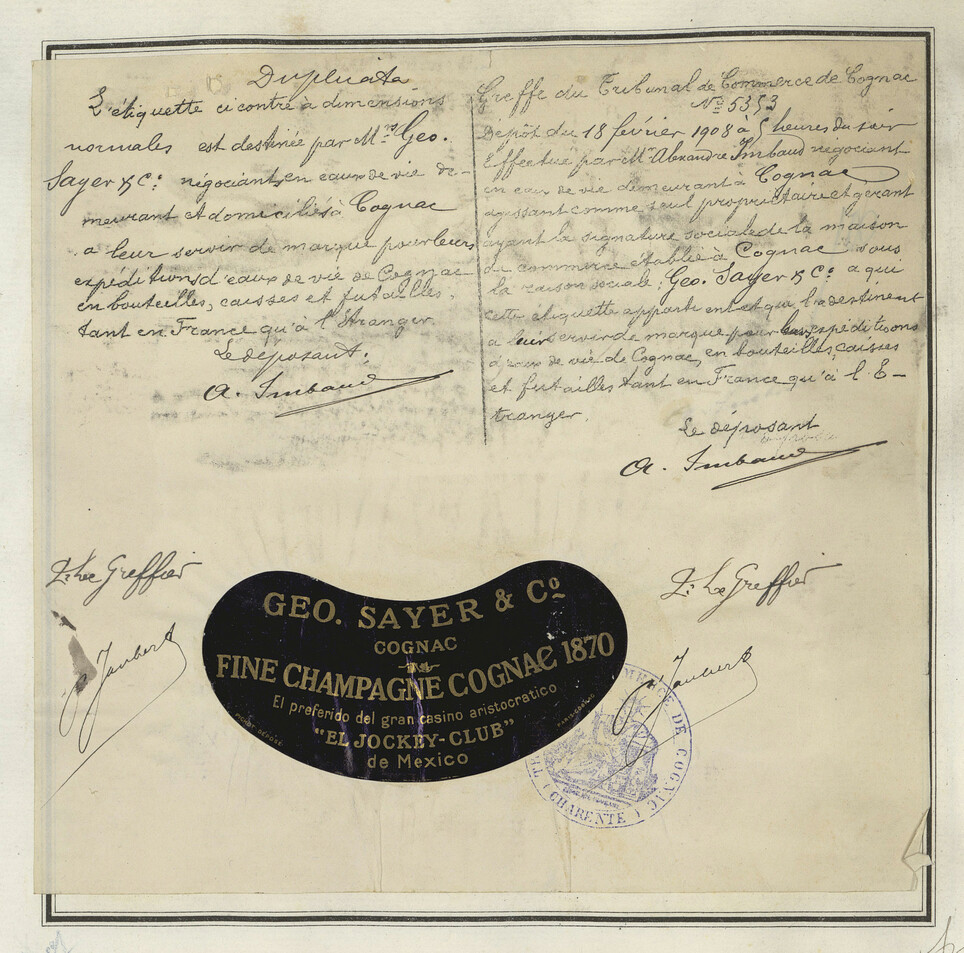 Duplicata
L'étiquette ci contre a dimensions
normales est destinée par Mrs Geo.
Sayer & Co: négociants en eaux de vie de-
meurant et domiciliés à Cognac
a leur servir de marque pour leurs
expéditions d'eaux de vie de Cognac
en bouteilles, caisses et futailles,
tant en France qu'à l'Etranger.
Le déposant.
A. Imbaud
Greffe du Tribunal de Commerce de Cognac
No 5353
Dépôt du 18 février 1908 à 5 heures du soir
Effectué par Mr Alexandre Imbaud négociant
en eau de vie demeurant à Cognac
agissant comme seul propriétaire et gérant
ayant la signature sociale de la maison
de commerce établie à Cognac sous
la raison sociale: Geo. Sayer & Co. a qui
cette étiquette appartient et qui la destinent
a leur servir de marque pour leurs expéditions
d'eaux de vie de Cognac, en bouteilles, caisses
et futailles tant en France qu'à l'E-
tranger.
Le déposant
A. Imbaud
Le Greffier
Jaubert
Le Greffier
Jaubert
GEO. SAYER & Co
COGNAC
FINE CHAMPAGNE COGNAC 1870
El preferido del gran casino aristocratico
"EL JOCKEY-CLUB"
de Mexico
DE COGNAC
(CHARENTE)